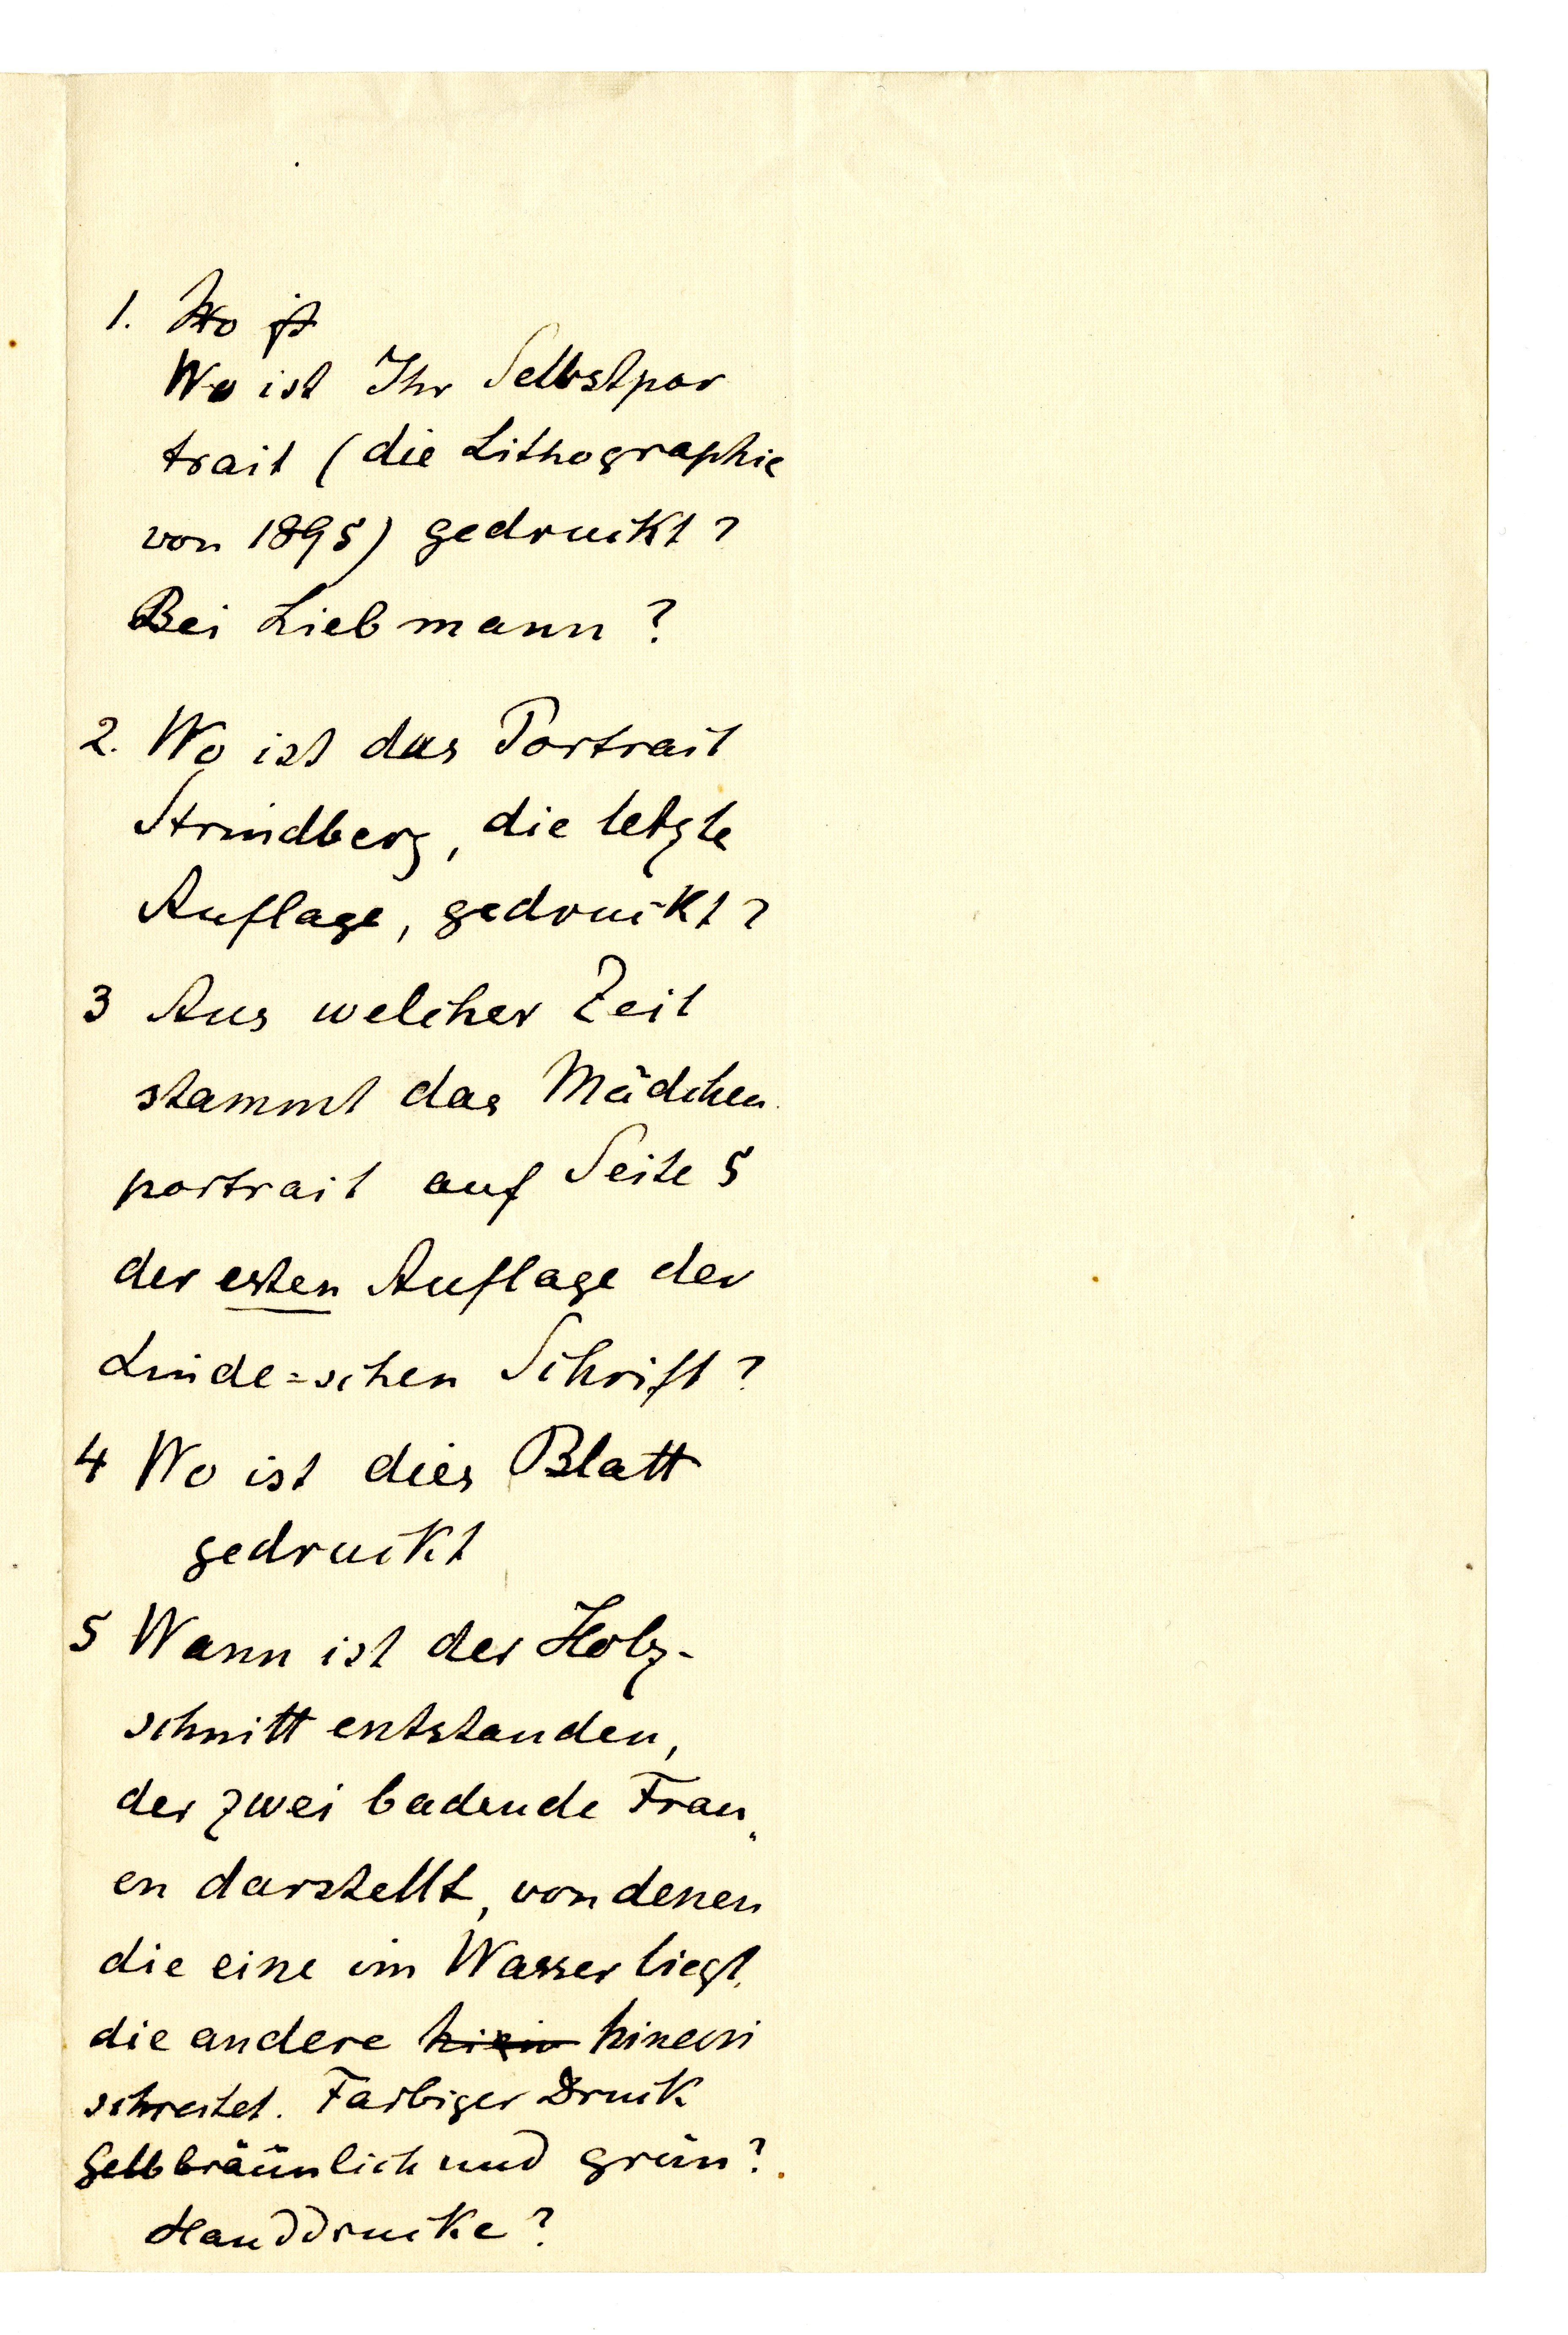 1. Wo ist
Wo ist Ihr Selbstpor
trait (die Lithographie
von 1895) gedruckt?
Bei Liebmann?
2. Wo ist das Portrait
Strindberg, die letzte
Auflage, gedruckt?
3 Aus welcher Zeit
stammt das Mädchen
portrait auf Seite 5
der ersten Auflage der
Linde=schen Schrift?
4 Wo ist dies Blatt
gedruckt
5 Wann ist der Holz-
schnitt entstanden,
der zwei badende Frau„
en darstellt, von denen
die eine im Wasser liegt,
die andere hinein
schreitet. Farbiger Druck
Gelbbräünlich und grün?
Handdrucke?